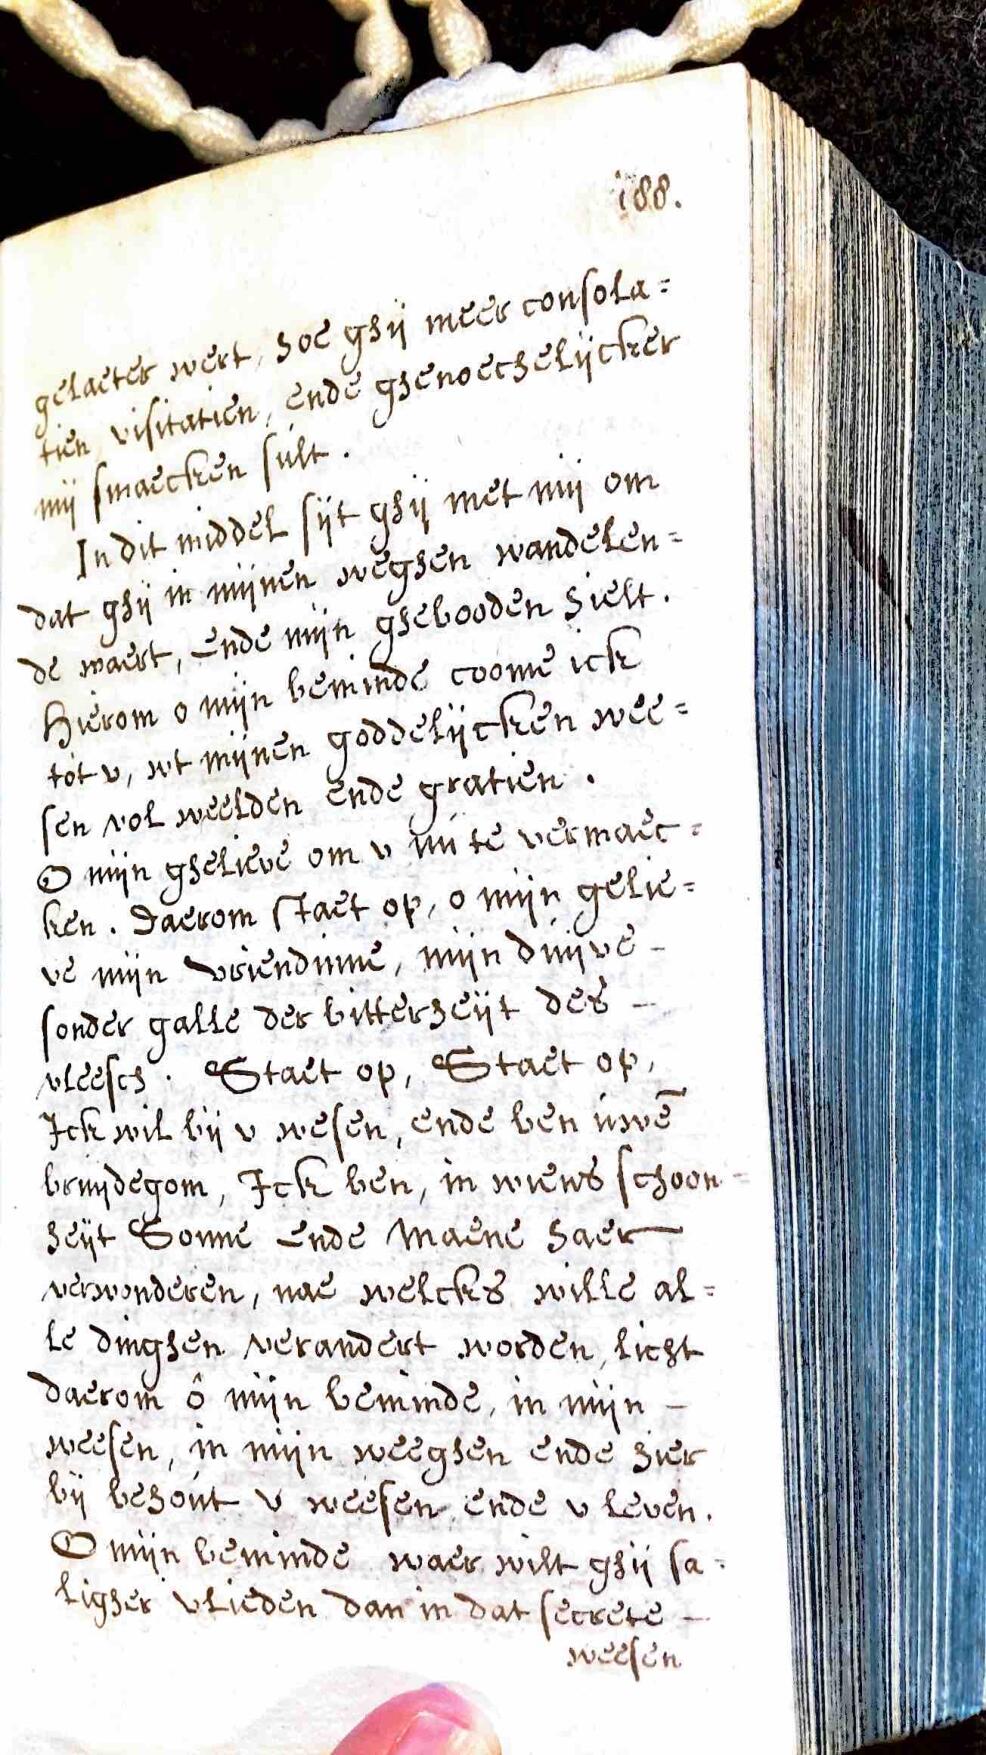 188.
gelaeter wert, hoe ghij meer consola=
tien, visitatien, ende ghenoechelijcker
mij smaecken sult.
In dit middel sijt ghij met mij om
dat ghij in mijnen weghen wandelen=
de waert, ende mijn ghebooden hielt.
Hierom o mijn beminde coome ick
tot v, wt mijnen goddelijcken wee=
sen vol weelden ende gratien.
O mijn ghelieve om v nu te vermaec=
ken. Daerom staet op, o mijn gelie=
ve mijn vriendinne, mijn duijve -
sonder galle der bitterheijt des -
vleesch. Staet op, Staet op,
Ick wil bij v wesen, ende ben uwē
bruijdegom, Ick ben, in wiens schoon=
heijt Sonne ende Maene haer
verwonderen, nae welcks wille al=
le dinghen verandert worden, licht
daerom ô mijn beminde, in mijn -
weesen, in mijn weeghen ende hier
bij behout v weesen ende v leven.
O mijn beminde waer wilt ghij sa=
ligher vlieden dan in dat secrete -
weesen